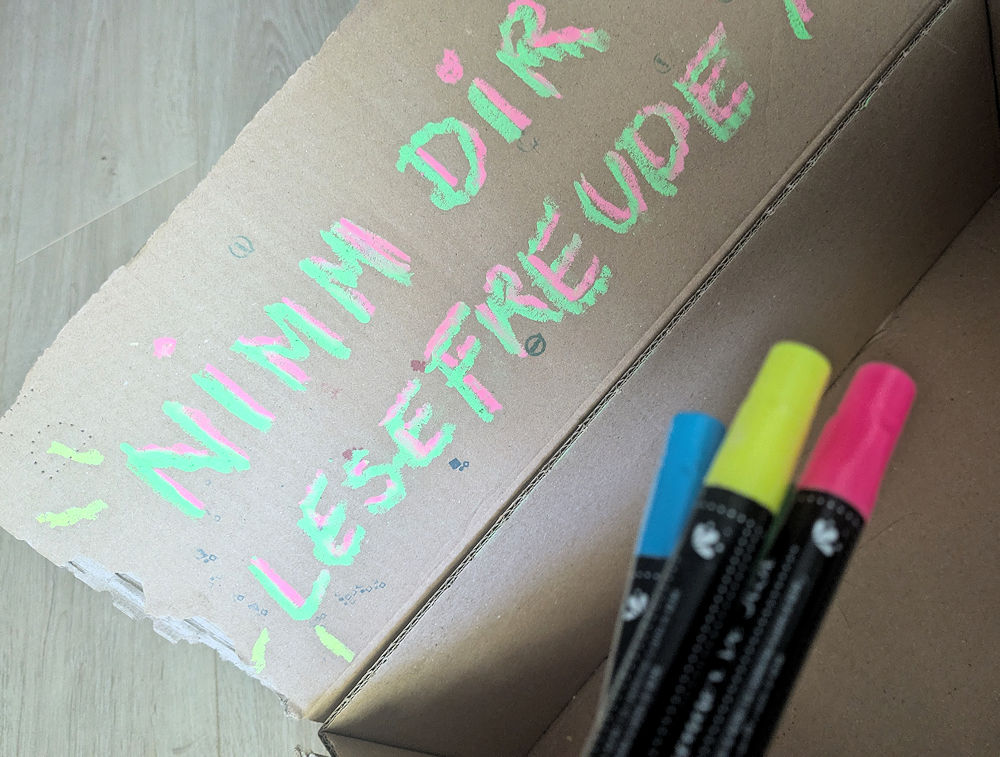 NIMM DIR
LESEFREUDE